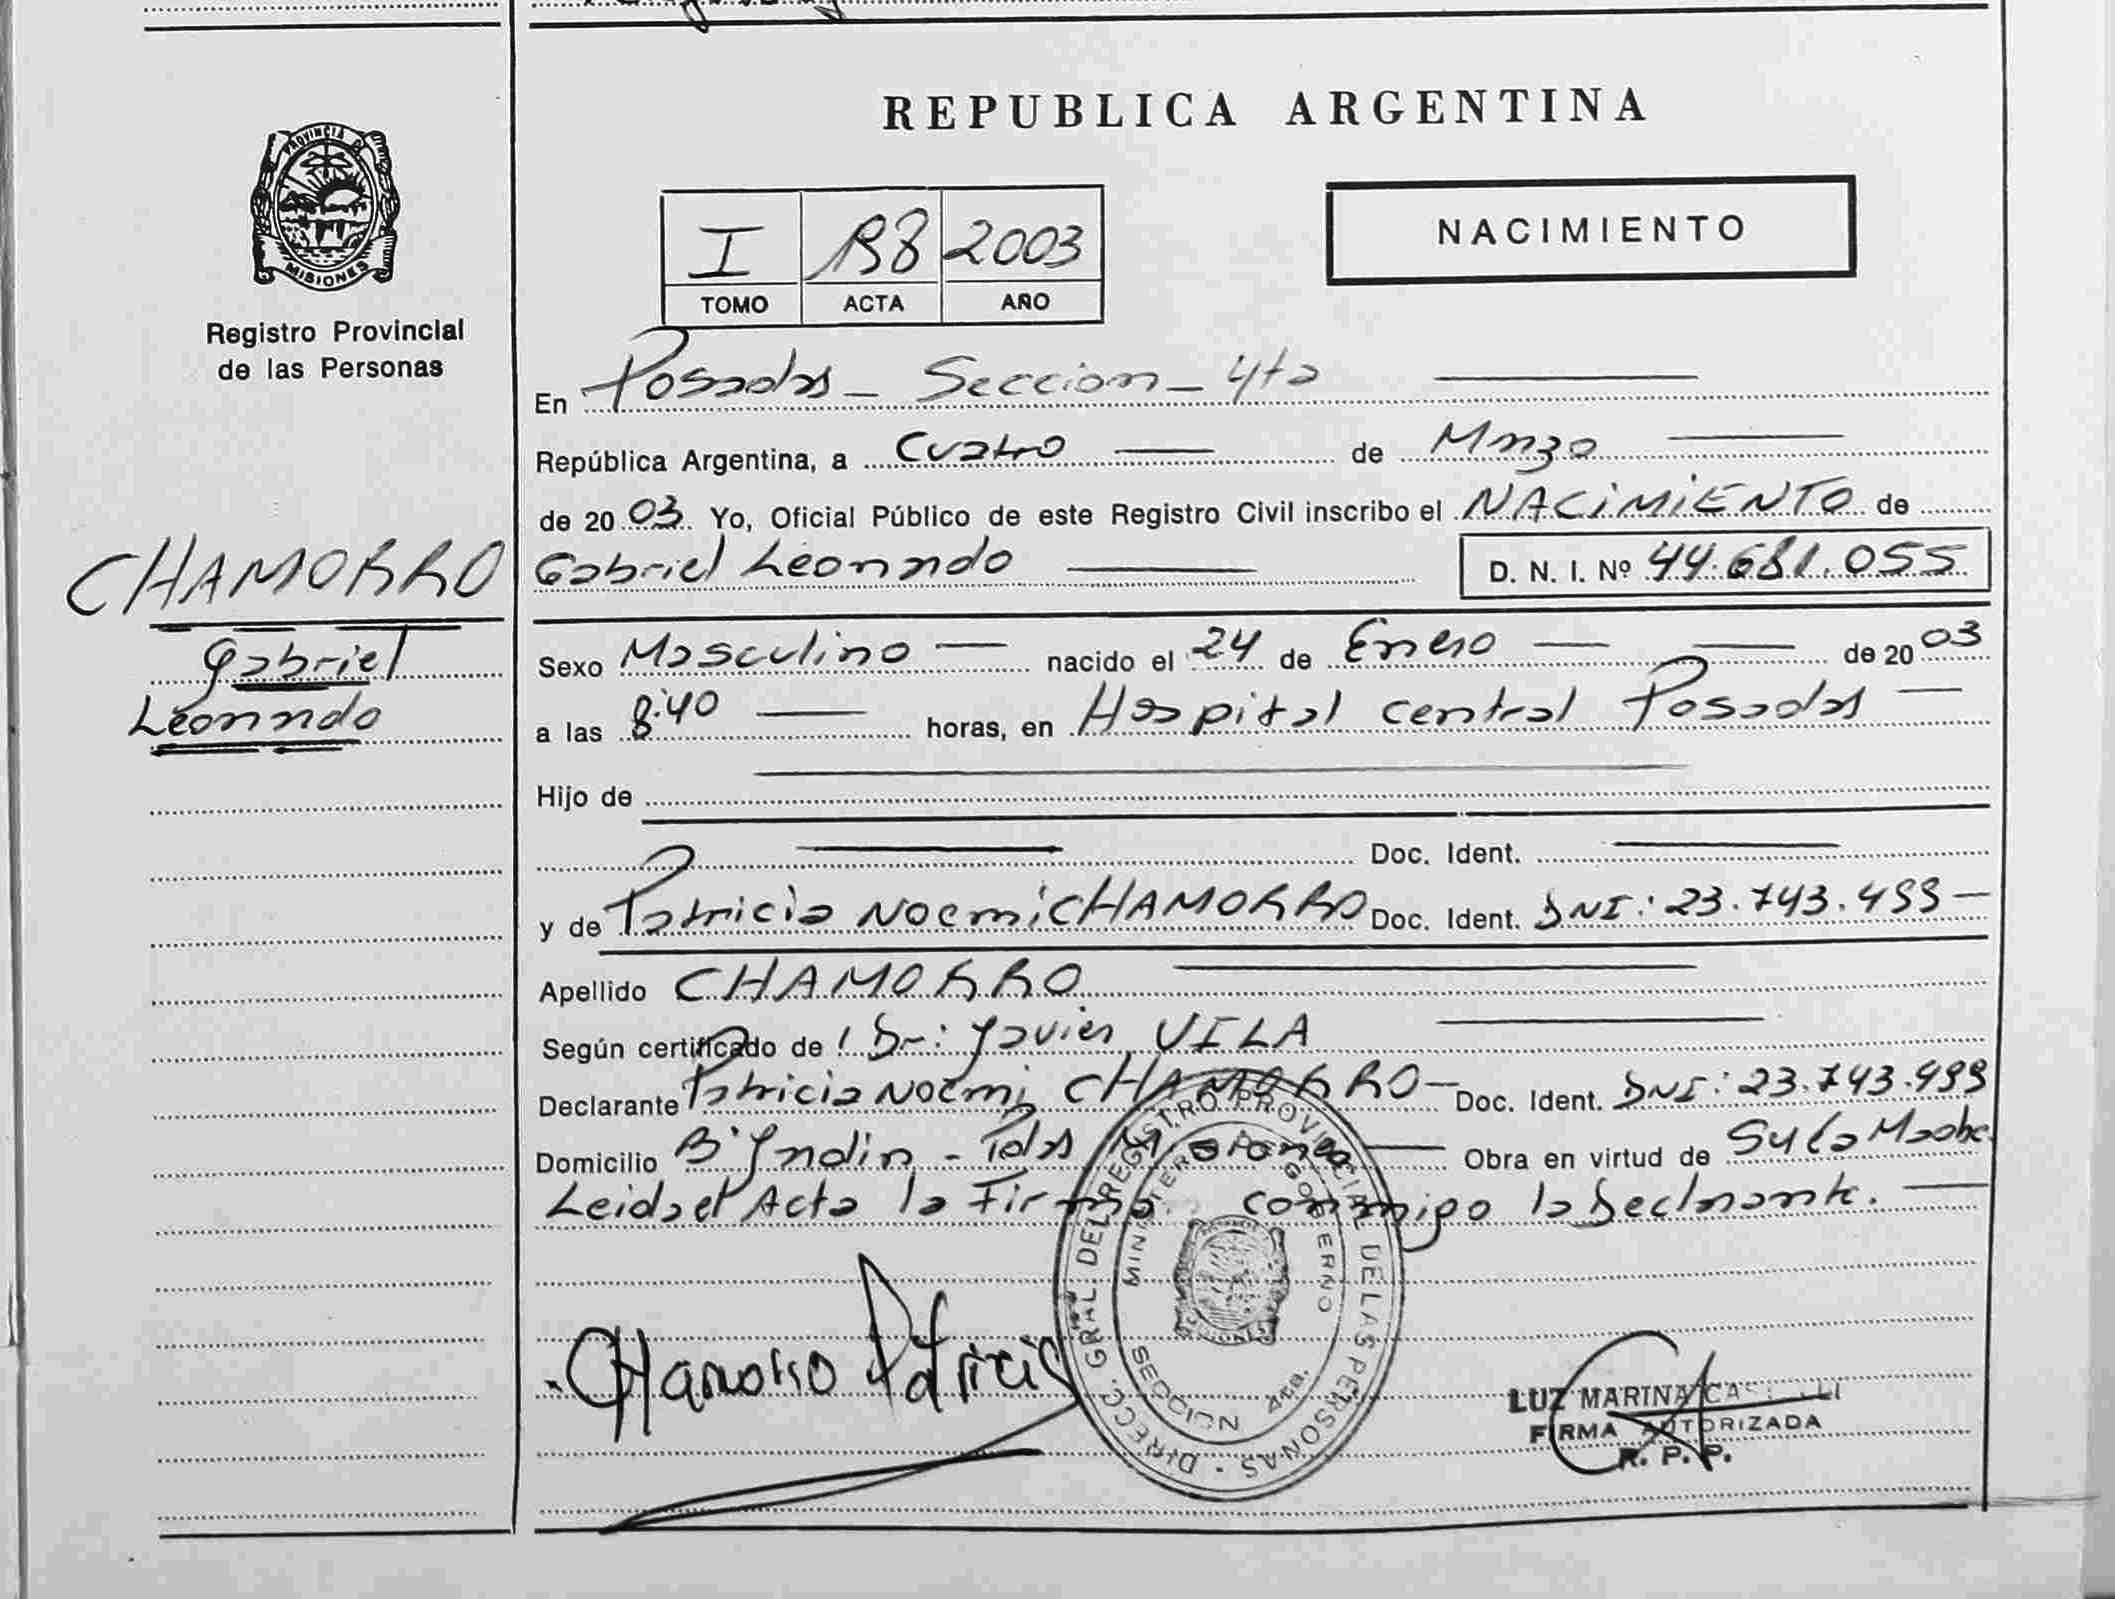 PROVINCIA DE
MISIONES
Registro Provincial
de las Personas
CHAMORRO
Gabriel
Leonardo
REPUBLICA ARGENTINA
I 2003
TOMO ACTA AÑO
NACIMIENTO
En Posadas - Seccion - 4ta
República Argentina, a Cuatro de Marzo
de 2003 Yo, Oficial Público de este Registro Civil inscribo el NACIMIENTO de
Gabriel Leonardo D. N. I. Nº 44.681.055
Sexo Masculino nacido el 24 de Enero de 2003
a las 8:40 horas, en Hospital central Posadas
Hijo de
Doc. Ident.
y de Patricia Noemi CHAMORRO Doc. Ident. DNI: 23.743.499
Apellido CHAMORRO
Según certificado de Dr: Javier VILA
Declarante Patricia Noemi CHAMORRO Doc. Ident. DNI: 23.743.499
Domicilio Bº Jardin - Pdas Misiones Obra en virtud de Su la Madre
Leida el Acta la Firma conmigo la Declarante.
CHamorro Patricia
DIRECC. GRAL. DEL REGISTRO PROVINCIAL DE LAS PERSONAS
MINISTERIO DE GOBIERNO
MISIONES
SECCION 4ta.
LUZ MARINA
FIRMA AUTORIZADA
R. P. P.